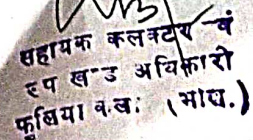 सहायक कलक्टर एवं
उप खण्ड अधिकारी
फुलिया क.ला: (भील.)